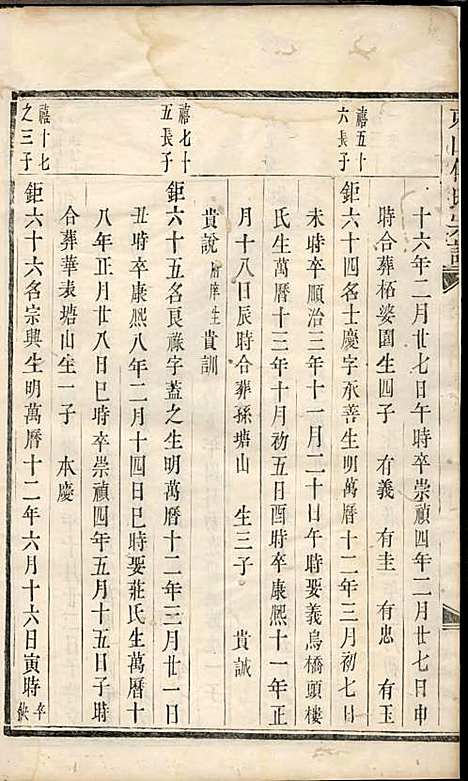 十六年二月廿七日午時卒崇禎四年二月廿七日申
時合葬柘婆園生四子　有義　有圭　有忠　有玉
禧五十
六長子
鉅六十四名士慶字承善生明萬曆十二年三月初七日
未時卒順治三年十一月二十日午時娶義烏橋頭樓
氏生萬曆十三年十月初五日酉時卒康熙十一年正
月十八日辰時合葬孫塘山　生三子　貴誠
貴說　貴訓
禧七十
五長子
鉅六十五名良祿字蓋之生明萬曆十二年三月廿一日
丑時卒康熙八年二月十四日巳時娶莊氏生萬曆十
八年正月廿八日巳時卒崇禎四年五月十五日子時
合葬華表塘山生一子　本慶
禧十七
之三子
鉅六十六名宗興生明萬曆十二年六月十六日寅時卒缺